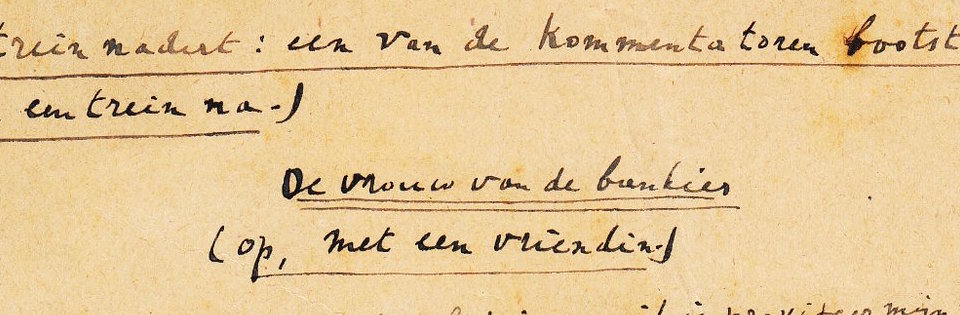 trein nadert: een van de kommentatoren bootst
een trein na.)
De vrouw van de bankier
(op, met een vriendin.)